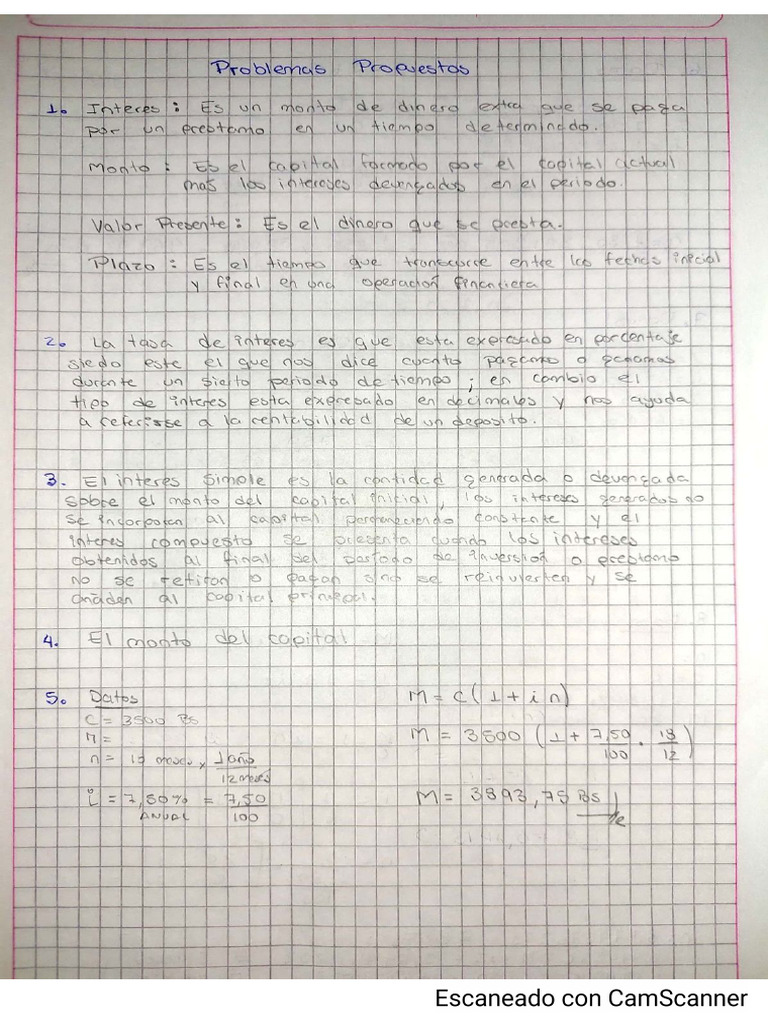 Problemas Propuestos
1. Interes: Es un monto de dinero extra que se paga
por un prestamo en un tiempo determinado.
Monto: Es el capital formado por el capital actual
mas los intereses devengados en el periodo.
Valor Presente: Es el dinero que se presta.
Plazo: Es el tiempo que transcurre entre las fechas inicial
y final en una operación financiera
2. La tasa de interes es que esta expresado en porcentaje
siedo este el que nos dice cuanto pagamos o ganamos
durante un sierto periodo de tiempo; en cambio el
tipo de interes esta expresado en decimales y nos ayuda
a referirse a la rentabilidad de un deposito.
3. El interes simple es la cantidad generada o devengada
sobre el monto del capital inicial, los intereses generados no
se incorporan al capital permaneciendo constante y el
interes compuesto se presenta cuando los intereses
obtenidos al final del periodo de inversion o prestamo
no se retiran o pagan sino se reinvierten y se
añaden al capital principal.
4. El monto del capital
5. Datos
C = 3500 Bs
M =
n = 18 meses x 1 año / 12 meses
i = 7,50% = 7,50 / 100
ANUAL
M = C(1 + i n)
M = 3500 (1 + 7,50/100 . 18/12)
M = 3893,75 Bs
Escaneado con CamScanner